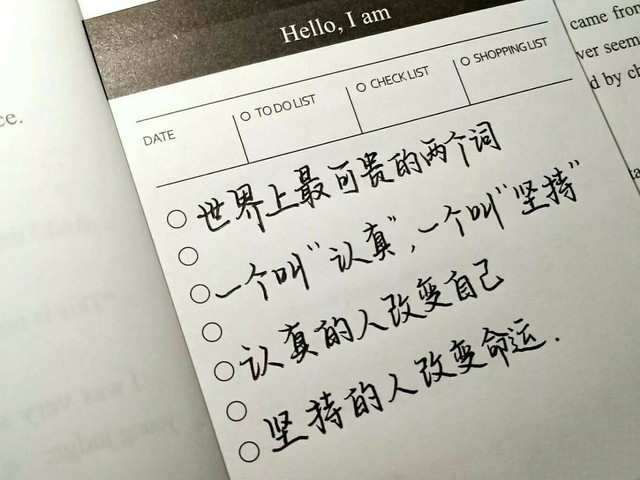 Hello, I am
DATE
TO DO LIST
CHECK LIST
SHOPPING LIST
世界上最可贵的两个词
一个叫“认真”,一个叫“坚持”
认真的人改变自己
坚持的人改变命运.
came from
ver seem
d by ch
ce.